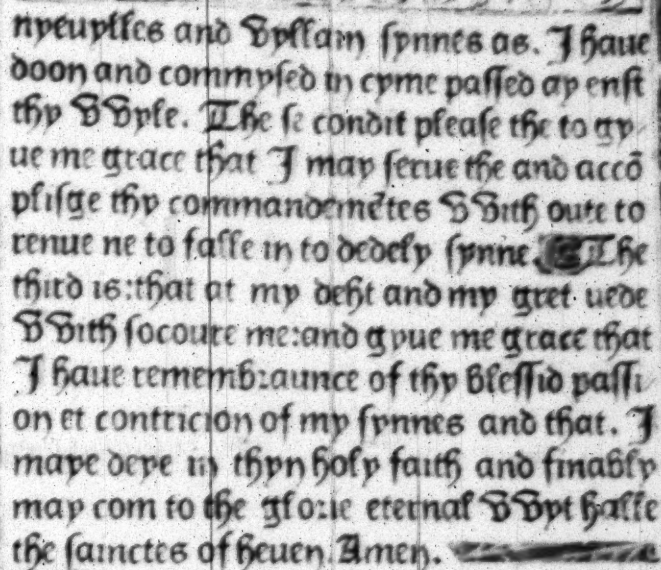 nyeuylles and VVyllain synnes as. I haue
doon and commysed in cyme passed ay enst
thy VVyle. The se condit please the to gy
ue me grace that I may serue the and accō
plisge thy commandemētes VVith oute to
renue ne to falle in to dedely synne. The
third is:that at my deht and my gret uede
VVith socoure me:and gyue me grace that
I haue remembraunce of thy blessid passi
on et contricion of my synnes and that. I
maye deye in thyn holy faith and finably
may com to the glorie eternal VVyt halle
the sainctes of heuen Amen.